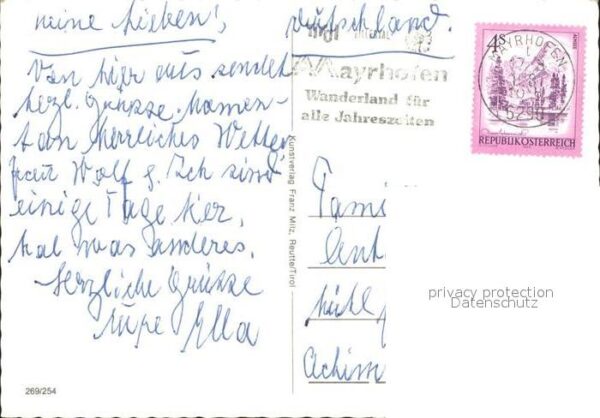 meine Lieben!,
Deutschland.
Mayrhofen
Wanderland für
alle Jahreszeiten
4S
MAYRHOFEN
REPUBLIK ÖSTERREICH
Von hier aus sendet
herzl. Grüsse. Momen-
tan herrliches Wetter
frau Wolf u. Ich sind
einige Tage hier,
mal was anderes.
Herzliche Grüsse
Ella
Kunstverlag Franz Milz, Reutte/Tirol
Fami
Ant
Achim
privacy protection
Datenschutz
269/254